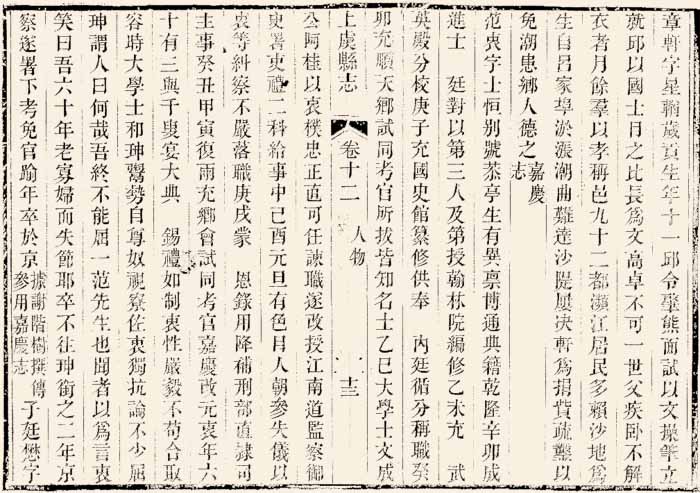 章軒字星輶歲貢生年十一邱令璧熊面試以文操筆立
就邱以國士目之比長爲文高卓不可一世父疾卧不解
衣者月餘羣以孝稱邑九十二都瀕江居民多賴沙地爲
生自呂家埠淤漲潮曲難達沙隄屢决軒爲捐貲疏鑿以
免潮患鄉人德之嘉慶志
范衷字士恒别號𦶜亭生有異禀博通典籍乾隆辛卯成
進士 廷對以第三人及第授翰林院編修乙未充 武
英殿分校庚子充國史館纂修供奉 内廷循分稱職癸
卯充順天鄉試同考官所拔皆知名士乙巳大學士文成
上虞縣志 卷十二 人物 十三
公阿桂以衷樸忠正直可任諫職遂改授江南道監察御
史署吏禮二科給事中己酉元旦有色目人朝參失儀以
衷等糾察不嚴落職庚戌蒙 恩錄用降補刑部直隸司
主事癸丑甲寅復兩充鄉會試同考官嘉慶改元衷年六
十有三與千叟宴大典 錫禮如制衷性嚴毅不苟合取
容時大學士和珅鬻勢自尊奴視寮佐衷獨抗論不少屈
珅謂人曰何哉吾終不能屈一范先生也聞者以爲言衷
笑曰吾六十年老寡婦而失節耶卒不往珅銜之二年京
察遂署下考免官踰年卒於京據謝階樹撰傳參用嘉慶志 子廷懋字